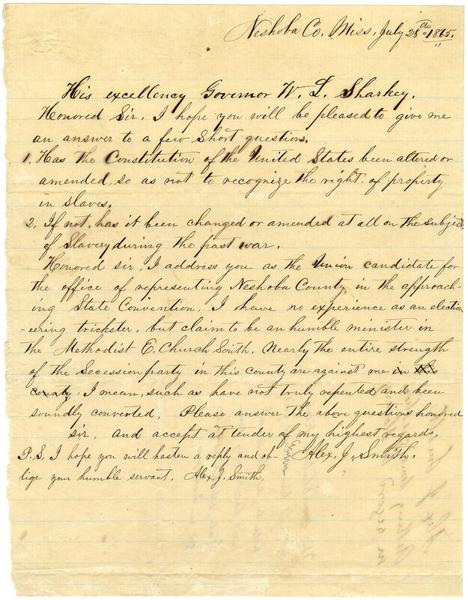 Neshoba Co. Miss, July 28th 1865.
His excellency Governor W. L. Sharkey.
Honored Sir. I hope you will be pleased to give me
an answer to a few short questions.
1. Has the Constitution of the United States been altered or
amended, so as not to recognize the right of property
in slaves.
2. If not, has it been changed or amended at all on the subject
of Slavery during the past war.
Honored sir, I address you as the Union candidate for
the office of representing Neshoba County in the approach-
ing State Convention, I have no experience as an election
-eering trickster, but claim to be an humble minister in
the Methodist E. Church South. Nearly the entire strength
of the Secession party in this county are against me in
county, I mean, such as have not truly repented and been
soundly converted. Please answer the above questions honored
sir, and accept at tender of my highest regards,
Alex. J. Smith.
P.S. I hope you will hasten a reply and ob-
lige your humble servant. Alex. J. Smith.